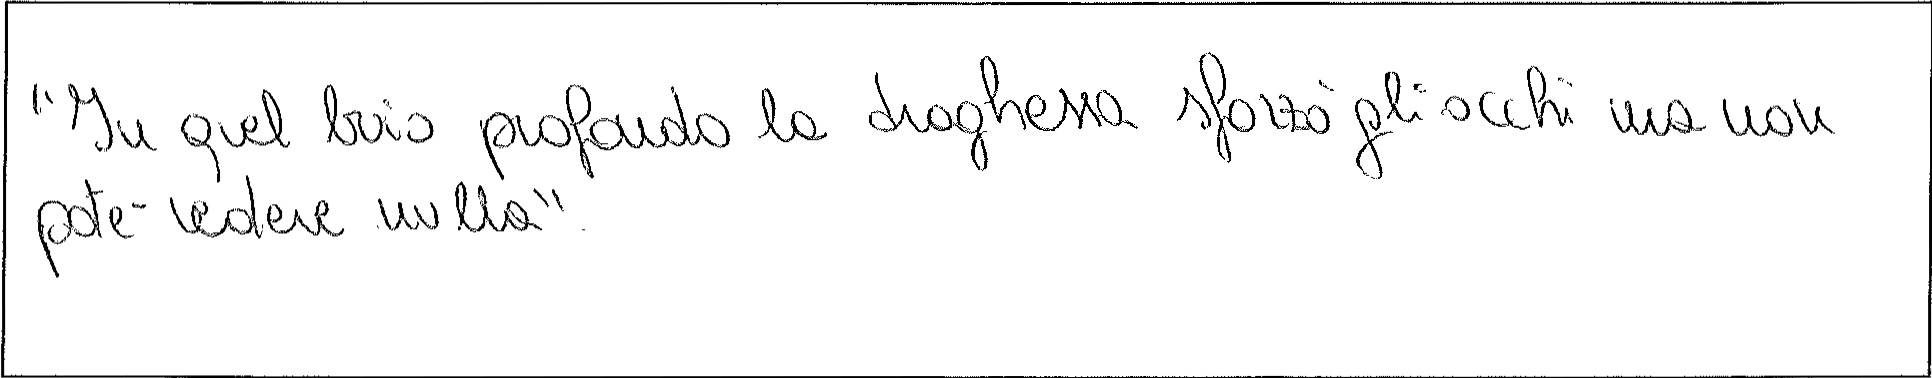 "In quel buio profondo la draghessa sforzò gli occhi ma non
potè vedere nulla".